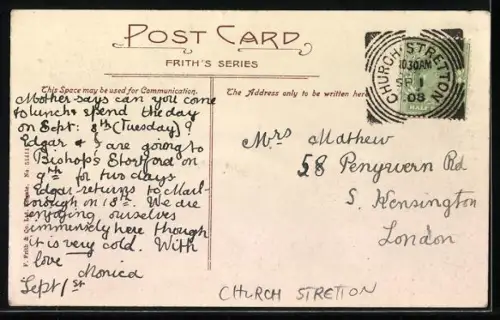 POST CARD
FRITH'S SERIES
This Space may be used for Communication.
The Address only to be written here
CHURCH·STRETTON
1030AM
SP 1
08
HALF
Mother says can you come
to lunch & spend the day
on Sept: 8th (Tuesday)?
Edgar & I are going to
Bishop's Stortford on
9th for two days
Edgar returns to Marl-
borough on 18th. We are
enjoying ourselves
immensely here though
it is very cold. With
love Monica
Sept 1st
Mrs Mathew
58 Penywern Rd
S. Kensington
London
F. Frith & Co. Ltd. Reigate. No
CHURCH STRETTON